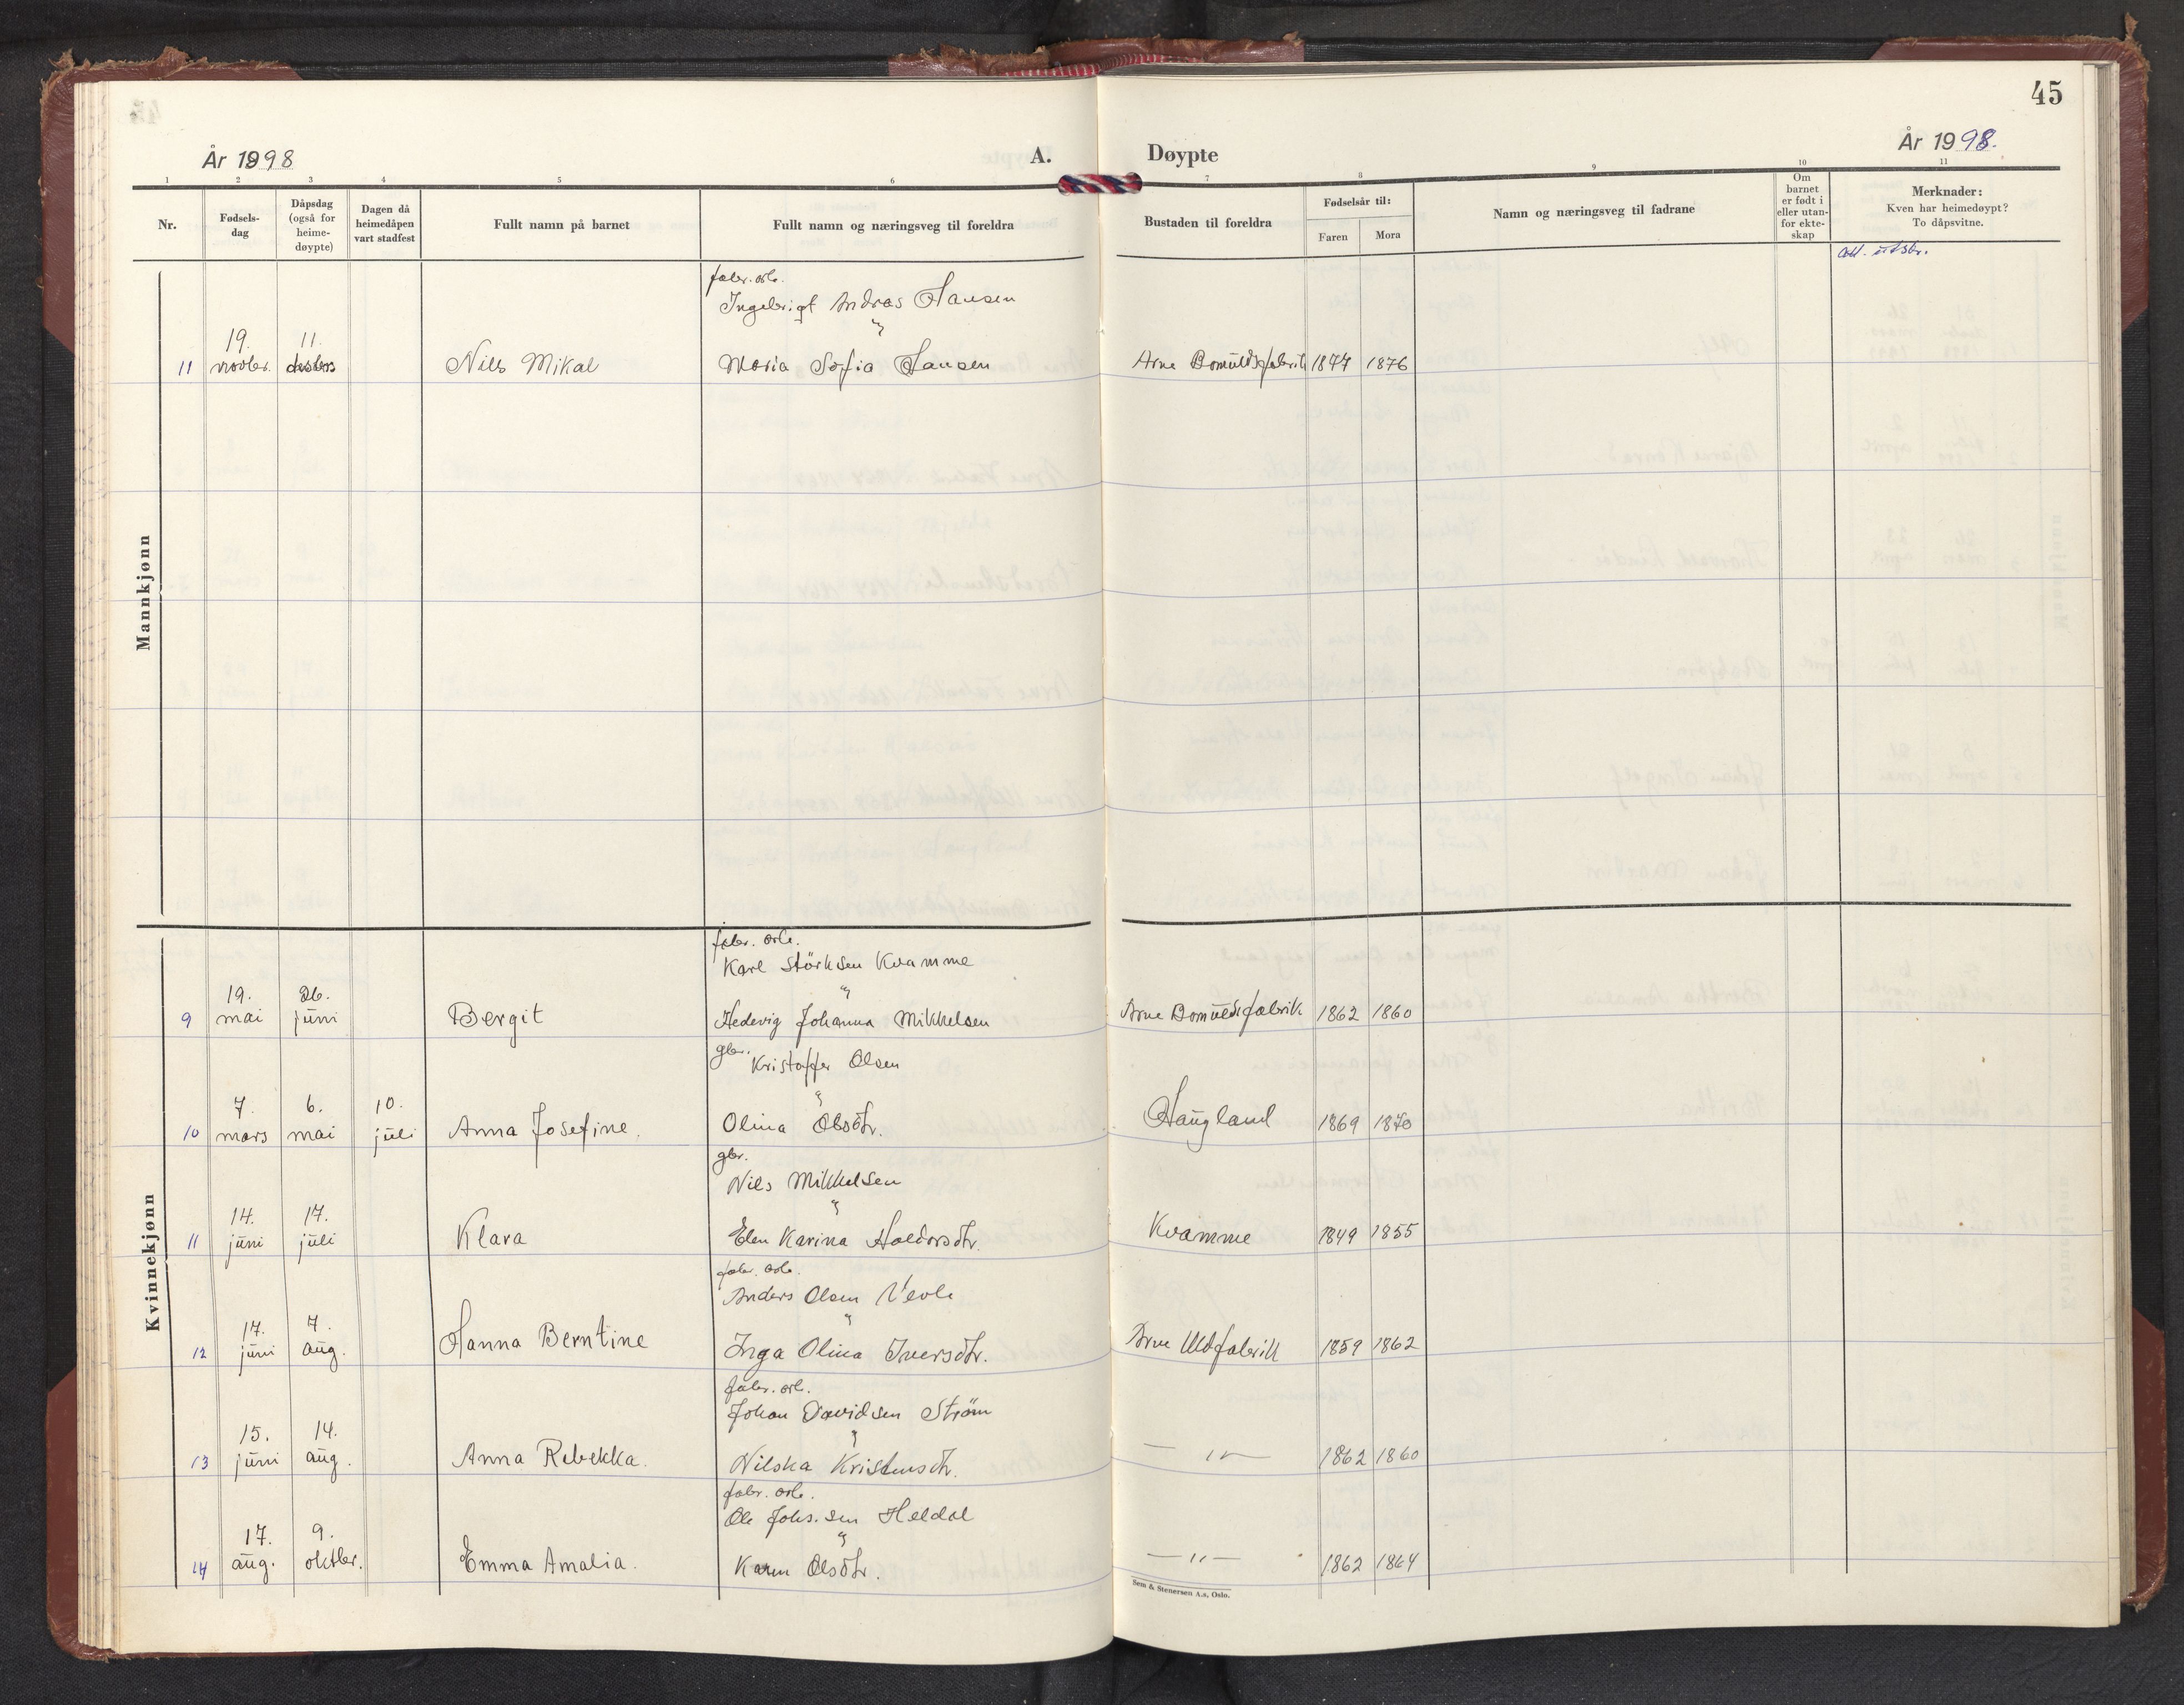 45
År 1898
A.
Døypte
År 1998.
1 2 3 4 5 6 7 8 9 10 11
Nr.
Fødsels-
dag
Dåpsdag
(også for
heime-
døypte)
Dagen då
heimedåpen
vart stadfest
Fullt namn på barnet
Fullt namn og næringsveg til foreldra
Bustaden til foreldra
Fødselsår til:
Faren Mora
Namn og næringsveg til fadrane
Om
barnet
er født i
eller utan-
for ekte-
skap
Merknader:
Kven har heimedøypt?
To dåpsvitne.
utskr.
Mannkjønn
fabr. arb.
Ingebrigt Andras Hansen
19. 11. "
11 novbr. desbr. Nils Mikal Maria Sofia Hansen Arne Bomuldsfabrik 1877 1876
Kvinnekjønn
fabr. arb.
Karl Störksen Kvamme
19. 26. "
9 mai juni Bergit Hedevig Johanna Mikkelsen Arne Bomuldsfabrik 1862 1860
gbr.
Kristoffer Olsen
7. 6. 10. "
10 mars mai juli Anna Josefine. Olina Olsdtr. Haugland 1869 1870
gbr.
Nils Mikkelsen
14. 17. "
11 juni juli Klara Elen Karina Haldorsdtr. Kvamme 1849 1855
fabr. arb.
Anders Olsen Vevle
17. 7. "
12 juni aug. Hanna Berntine Inga Olina Iversdtr. Arne Uldfabrik 1859 1862
fabr. arb.
Johan Davidsen Ström
15. 14. "
13 juni aug. Anna Rebekka. Nilska Kristensdtr. — " — 1862 1860
fabr. arb.
Ole Johs.sen Heldal
17. 9. "
14 aug. oktbr. Emma Amalia. Karen Olsdtr. — " — 1862 1864
Sem & Stenersen A.s, Oslo.